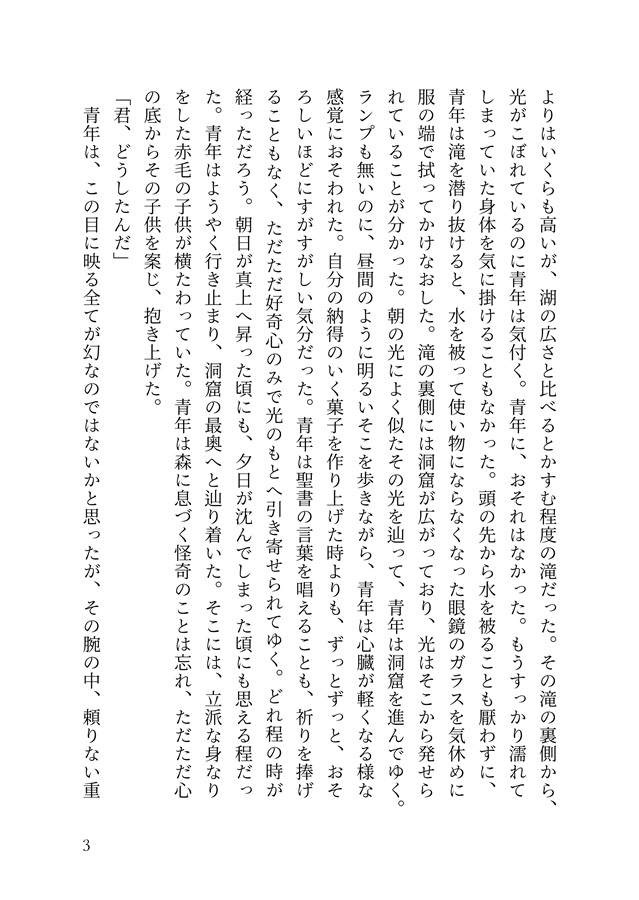 よりはいくらも高いが、湖の広さと比べるとかすむ程度の滝だった。その滝の裏側から、
光がこぼれているのに青年は気付く。青年に、おそれはなかった。もうすっかり濡れて
しまっていた身体を気に掛けることもなかった。頭の先から水を被ることも厭わずに、
青年は滝を潜り抜けると、水を被って使い物にならなくなった眼鏡のガラスを気休めに
服の端で拭ってかけなおした。滝の裏側には洞窟が広がっており、光はそこから発せら
れていることが分かった。朝の光によく似たその光を辿って、青年は洞窟を進んでゆく。
ランプも無いのに、昼間のように明るいそこを歩きながら、青年は心臓が軽くなる様な
感覚におそわれた。自分の納得のいく菓子を作り上げた時よりも、ずっとずっと、おそ
ろしいほどにすがすがしい気分だった。青年は聖書の言葉を唱えることも、祈りを捧げ
ることもなく、ただただ好奇心のみで光のもとへ引き寄せられてゆく。どれ程の時が
経っただろう。朝日が真上へ昇った頃にも、夕日が沈んでしまった頃にも思える程だっ
た。青年はようやく行き止まり、洞窟の最奥へと辿り着いた。そこには、立派な身なり
をした赤毛の子供が横たわっていた。青年は森に息づく怪奇のことは忘れ、ただただ心
の底からその子供を案じ、抱き上げた。
「君、どうしたんだ」
青年は、この目に映る全てが幻なのではないかと思ったが、その腕の中、頼りない重
3